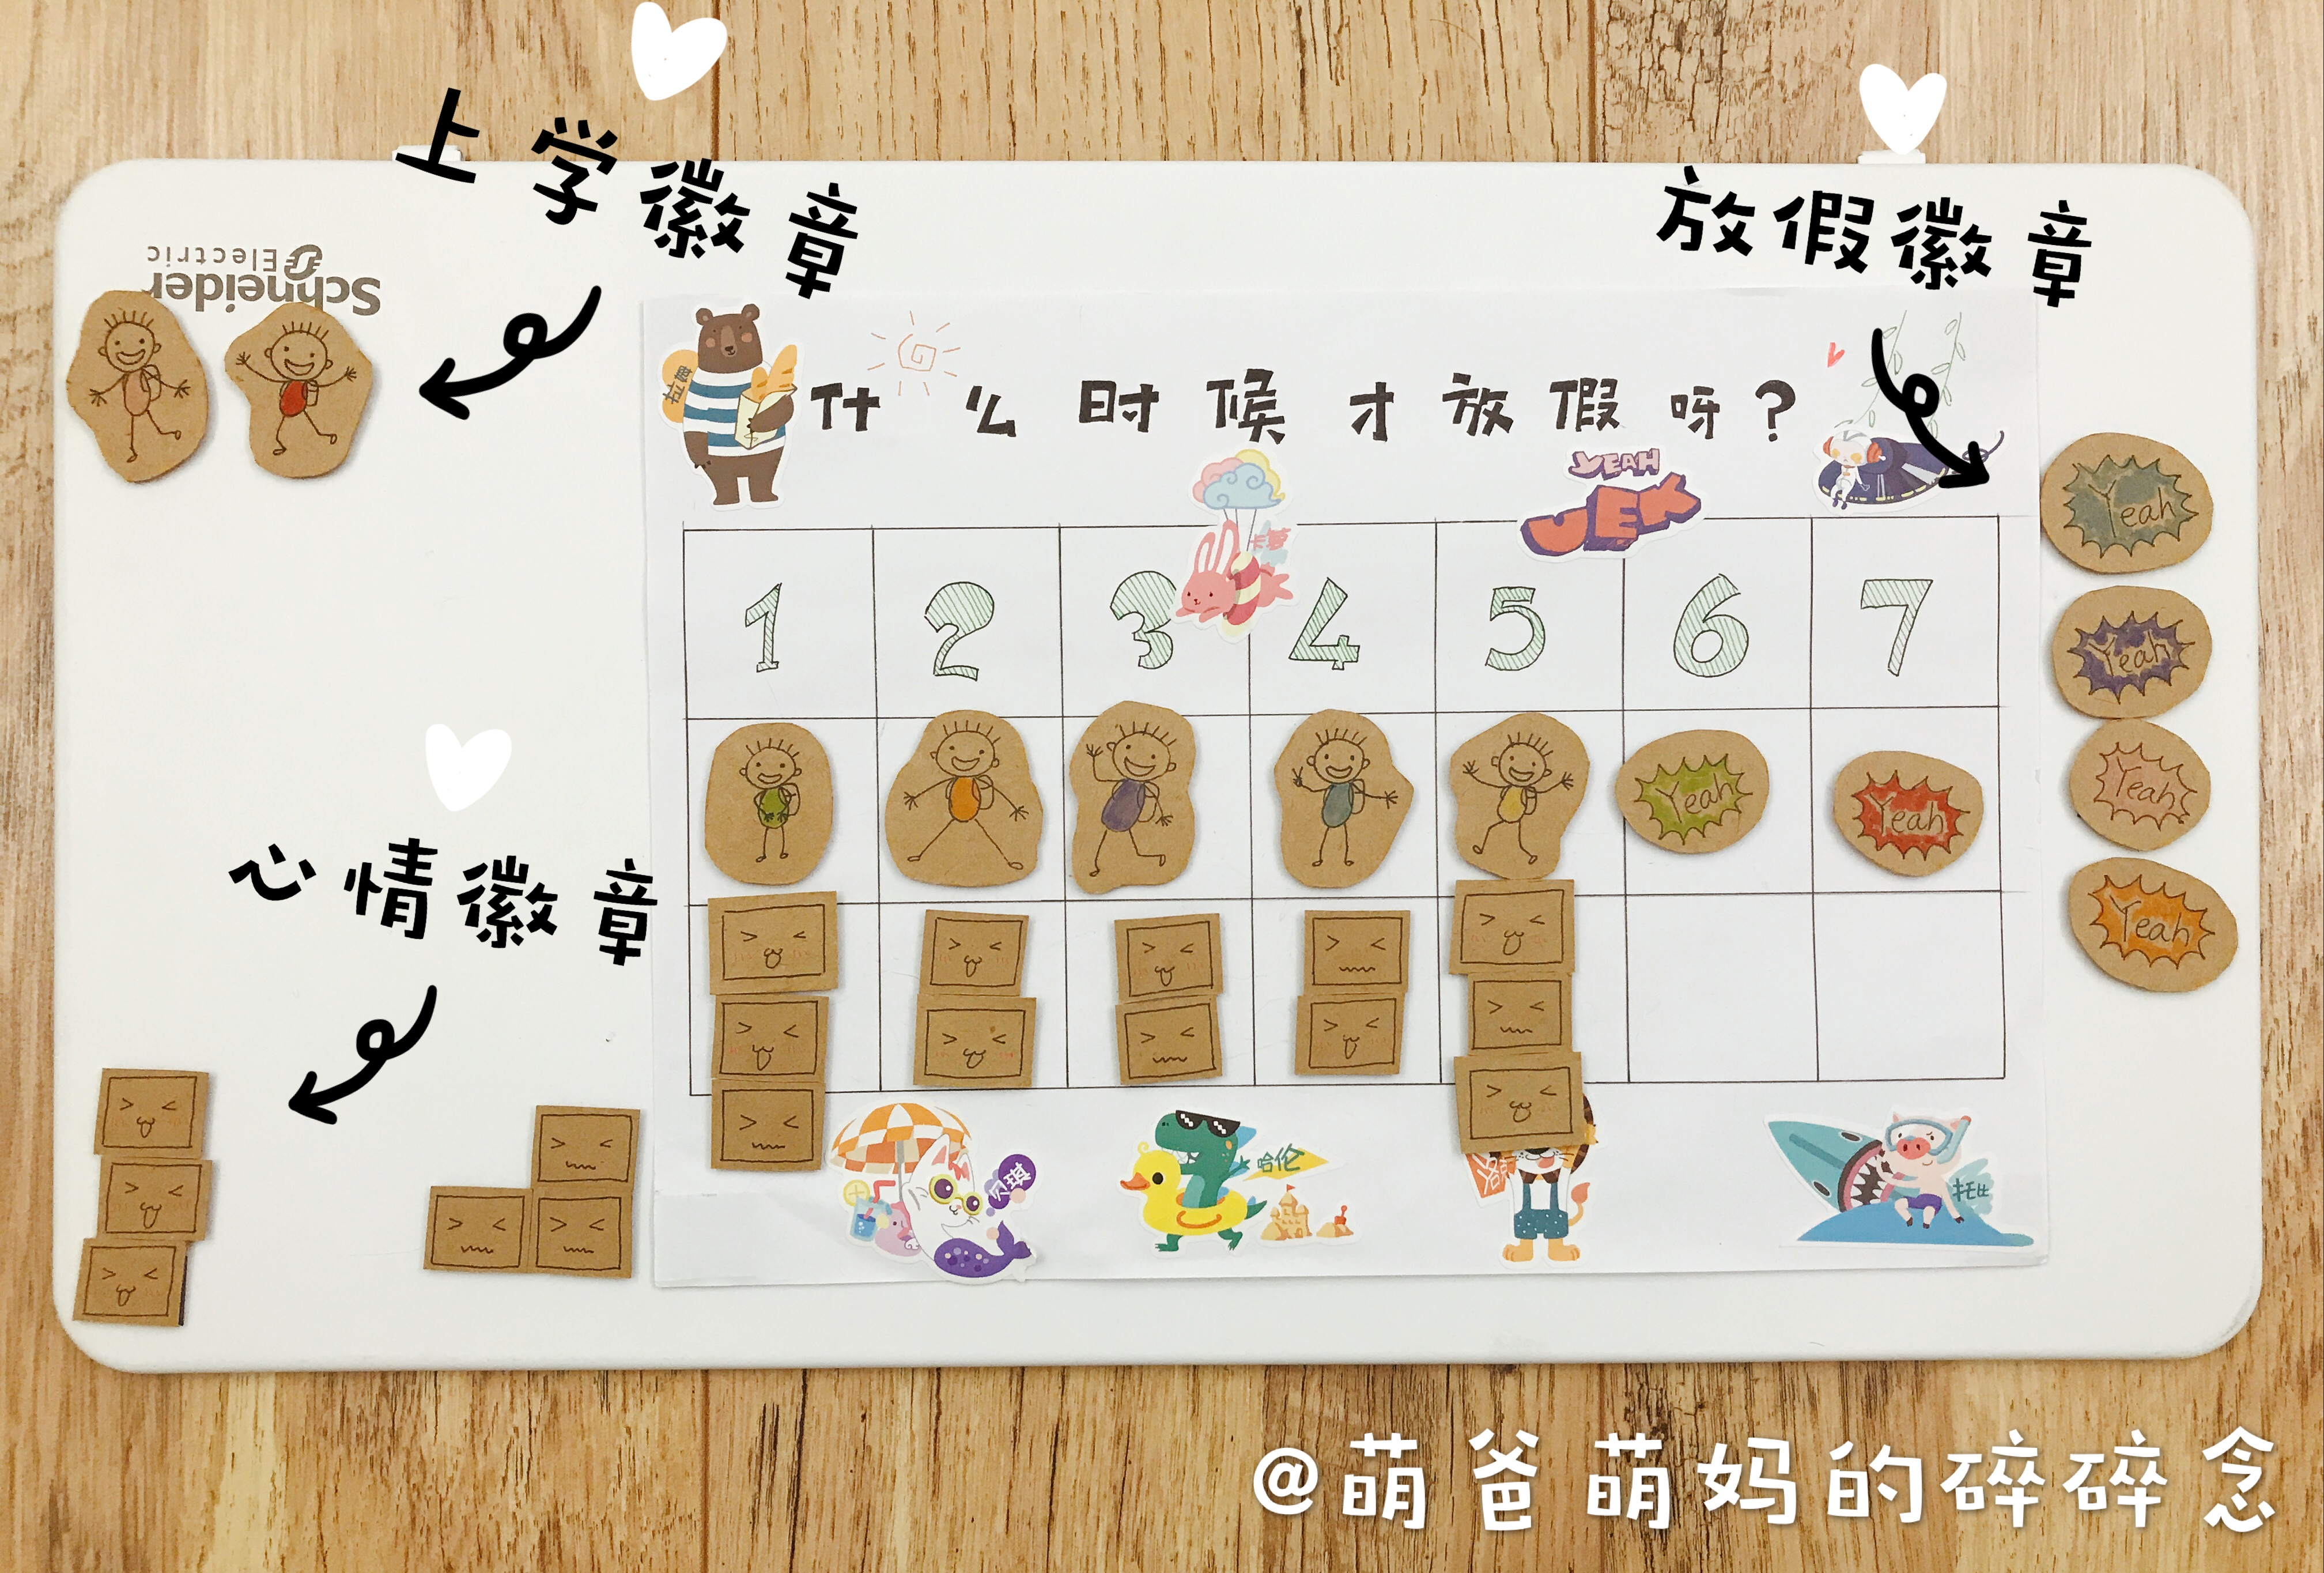 上学徽章
放假徽章
Schneider
Electric
拉姆
什么时候才放假呀？
YEAH
卡萝
1 2 3 4 5 6 7
Yeah
Yeah
Yeah
Yeah
Yeah
Yeah
心情徽章
贝琪
哈伦
托比
@萌爸萌妈的碎碎念